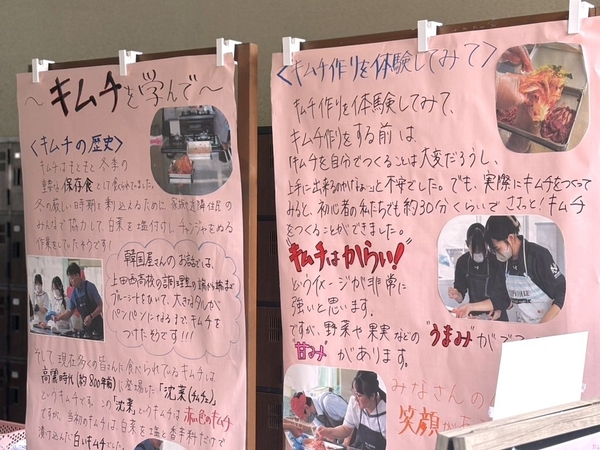 ～キムチを学んで～
〈キムチの歴史〉
キムチはもともと冬季の
重要な保存食として食べられてました。
冬の厳しい時期を乗り込えるために家族や近隣住民の
みんなで協力して、白菜を塩付けし、チャンジャをぬる
作業をしていたそうです!
韓国屋さんのお話では、
上田西高校の調理室の端から端まで
ブルーシートをひいて、大きなタルが
パンパンになるまでキムチを
つけたそうです!!!
そして現在多くの皆さんに食べられているキムチは、
高麗時代(約800年前)に登場した「沈菜(チムチェ)」
というキムチです。この「沈菜」というキムチは赤色のキムチ
ですが、当初のキムチは、白菜を塩と香辛料だけで
漬け込んだ白いキムチでした。
〈キムチ作りを体験してみて〉
キムチ作りを体験してみて、
キムチ作りをする前は、
「キムチを自分でつくることは大変だろうし、
上手に出来るのかな…」と不安でした。でも、実際にキムチをつくって
みると、初心者の私たちでも約30分くらいでささっと!キムチ
をつくることができました。
"キムチはからい!"
というイメージが非常に
強いと思います。
ですが、野菜や果実などの"うまみ"が
"甘み"があります。
みなさんの
笑顔が